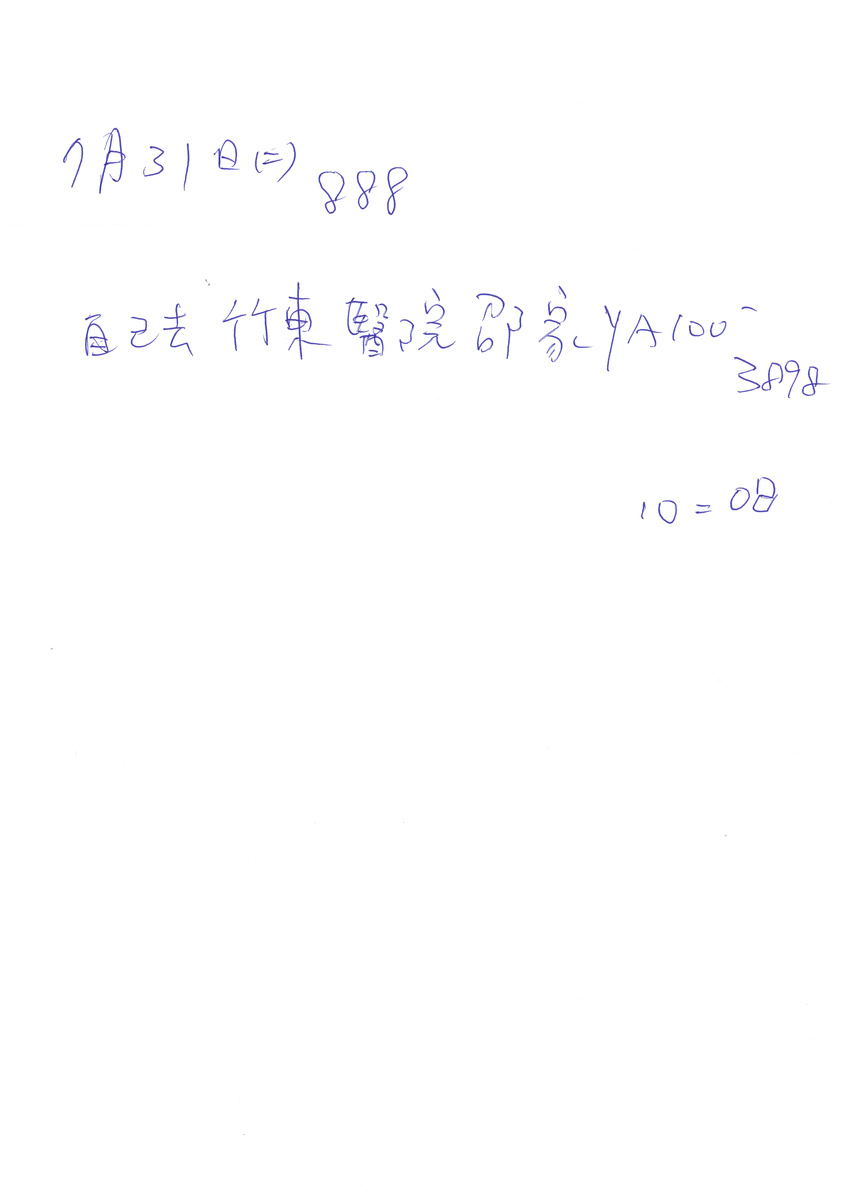 7月31日(二)
888
自己去 竹東醫院 邵家YA100-
3898
10=08